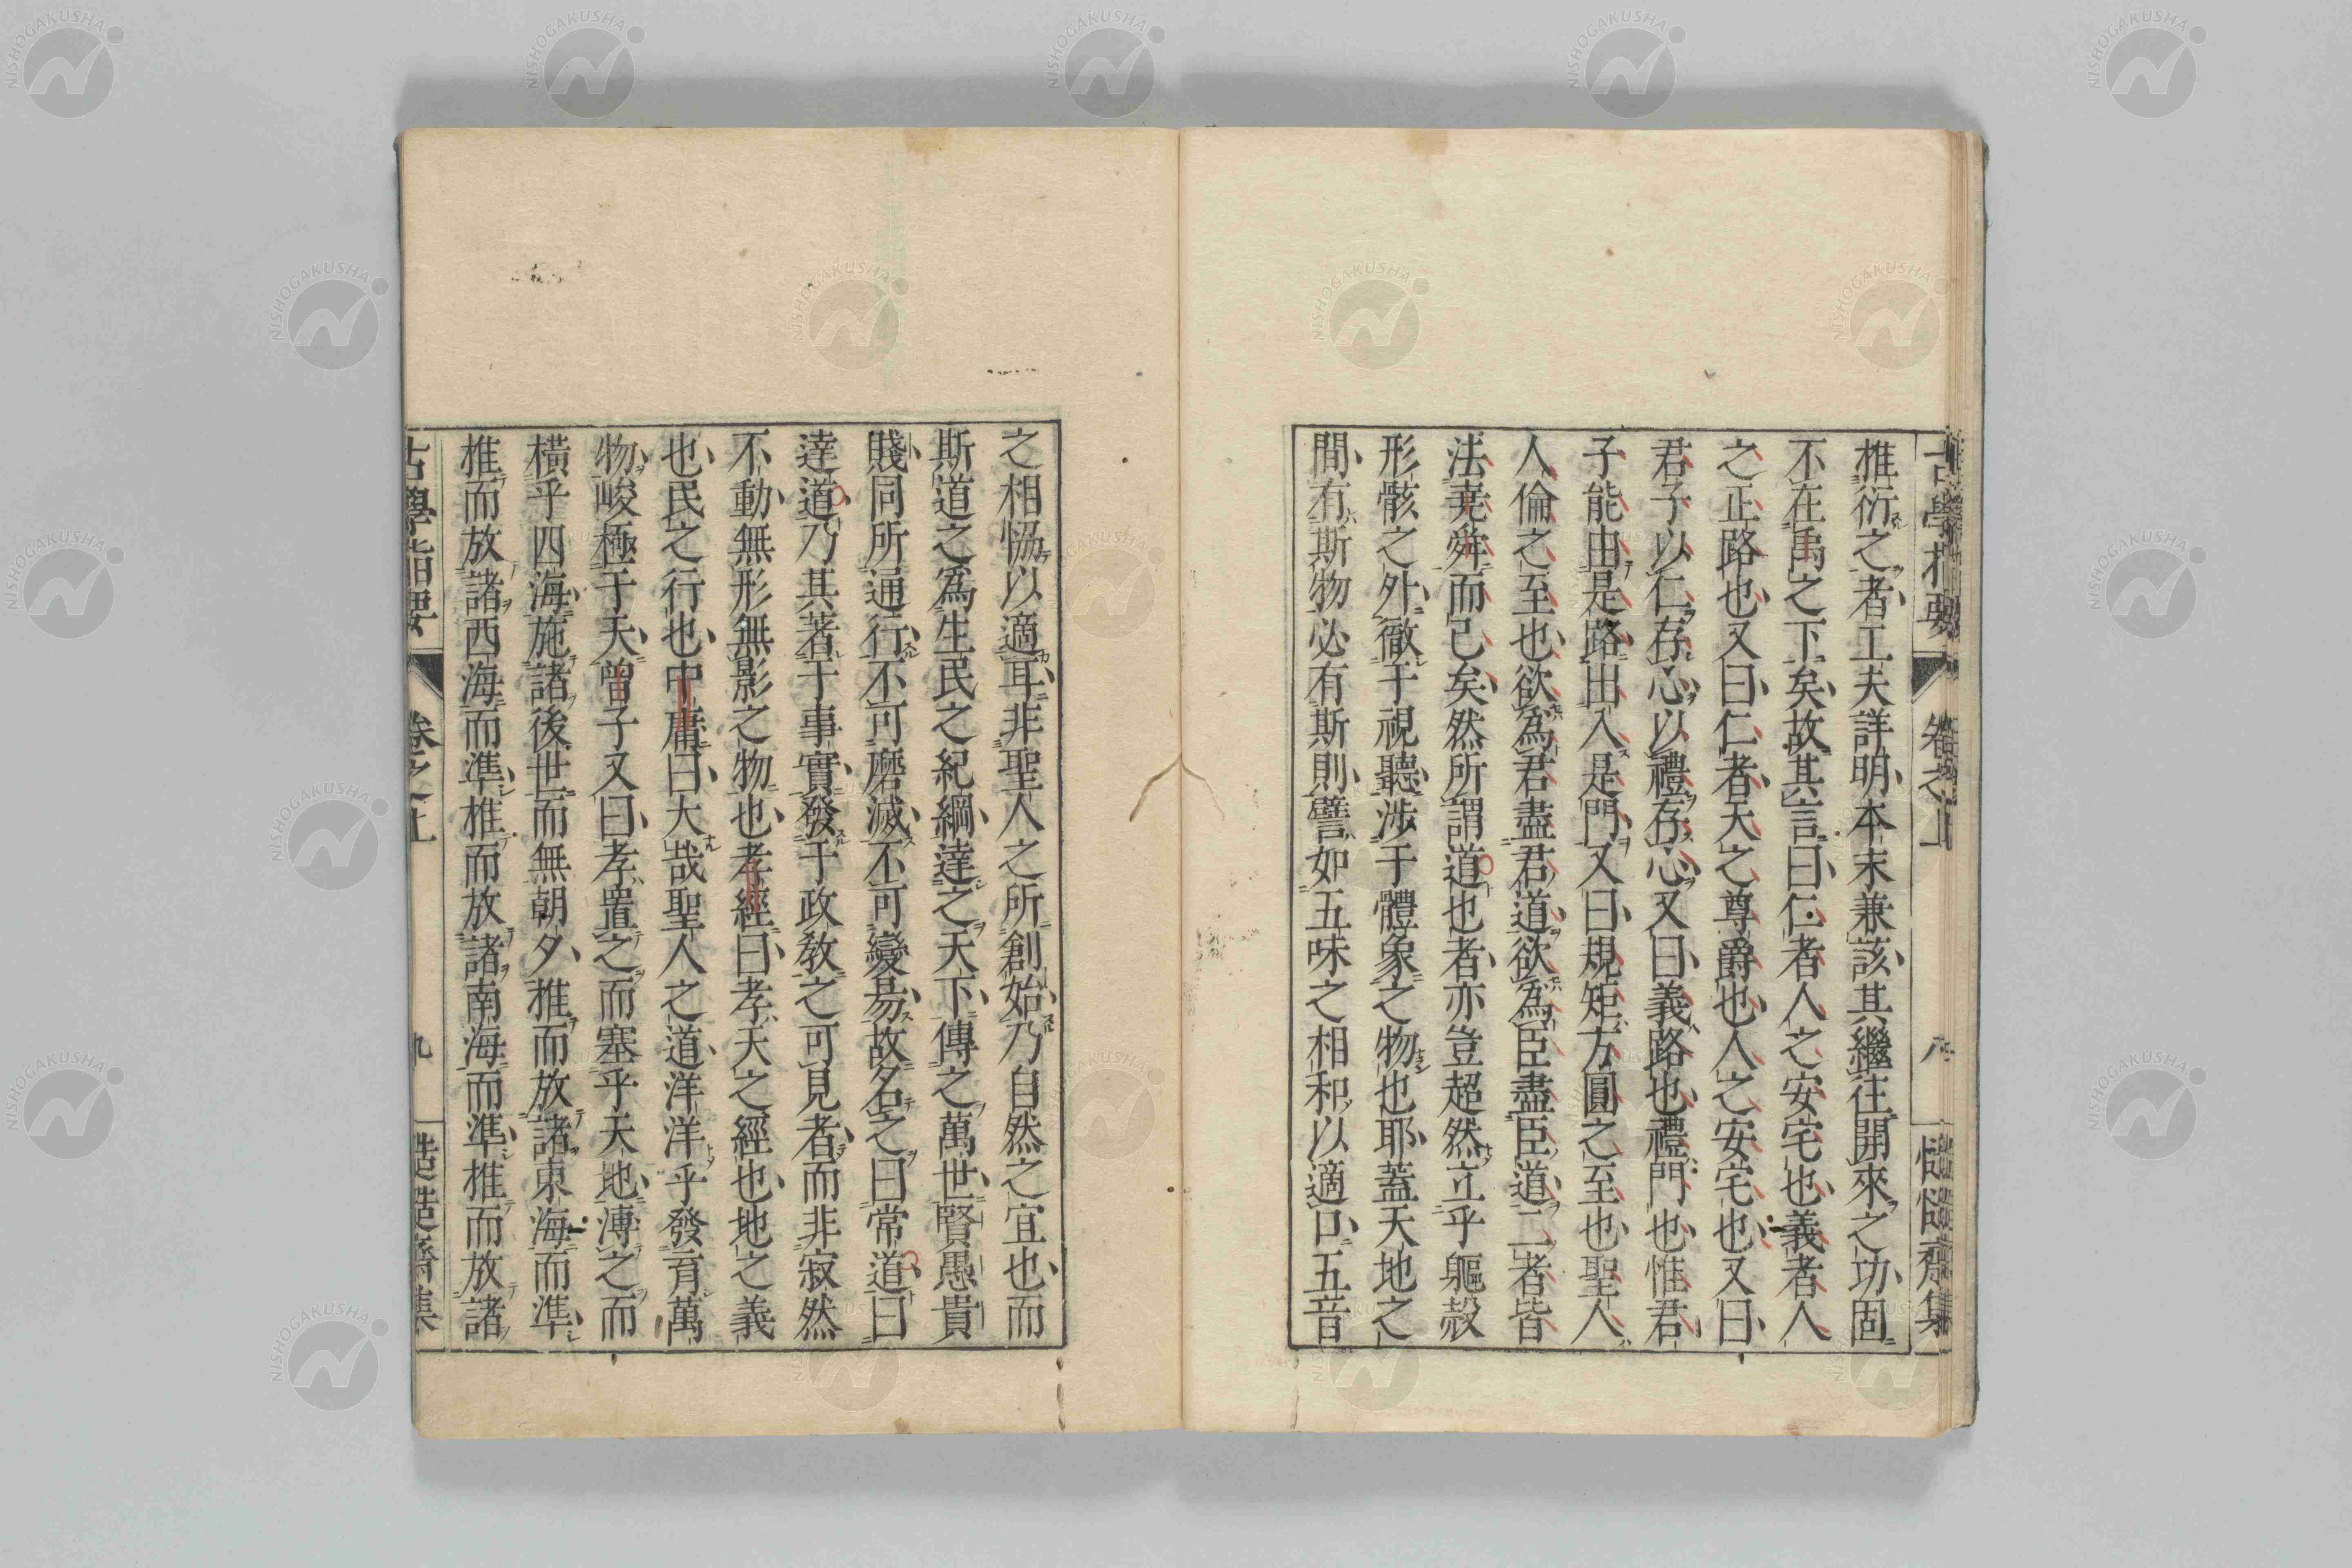 古學指要 卷之上 八 慥慥齋集
推衍之者工夫詳明本末兼該其繼往開來之功固
不在禹之下矣故其言曰仁者人之安宅也義者人
之正路也又曰仁者天之尊爵也人之安宅也又曰
君子以仁存心以禮存心又曰義路也禮門也惟君
子能由是路出入是門又曰規矩方圓之至也聖人
人倫之至也欲為君盡君道欲為臣盡臣道二者皆
法堯舜而已矣然所謂道也者亦豈超然立乎軀殼
形骸之外徹于視聽渉于體象之物也耶蓋天地之
間有斯物必有斯則譬如五味之相和以適口五音
之相恊以適耳非聖人之所創始乃自然之宜也而
斯道之爲生民之紀綱達之天下傳之萬世賢愚貴
賤同所通行不可磨滅不可變易故名之曰常道曰
達道乃其著于事實發于政教之可見者而非寂然
不動無形無影之物也孝經曰孝天之經也地之義
也民之行也中庸曰大哉聖人之道洋洋乎發育萬
物峻極于天曾子又曰孝置之而塞乎天地溥之而
橫乎四海施諸後世而無朝夕推而放諸東海而準
推而放諸西海而準推而放諸南海而準推而放諸
古學指要 卷之上 九 慥慥齋集
NISHOGAKUSHA